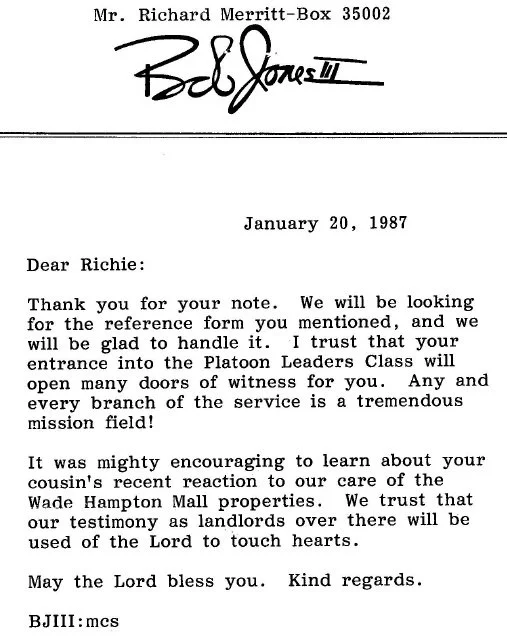 Mr. Richard Merritt-Box 35002
Bob Jones III
January 20, 1987
Dear Richie:
Thank you for your note. We will be looking
for the reference form you mentioned, and we
will be glad to handle it. I trust that your
entrance into the Platoon Leaders Class will
open many doors of witness for you. Any and
every branch of the service is a tremendous
mission field!
It was mighty encouraging to learn about your
cousin's recent reaction to our care of the
Wade Hampton Mall properties. We trust that
our testimony as landlords over there will be
used of the Lord to touch hearts.
May the Lord bless you. Kind regards.
BJIII:mcs